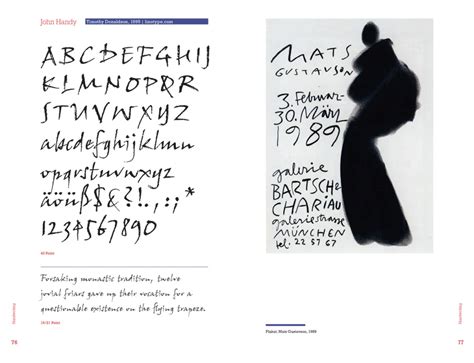 John Handy
Timothy Donaldson, 1999 | linotype.com
ABCDEFGHIJ
KLMNOPQR
STUVWXYZ
abcdefghijklmno
pqrstuvwxyz
äöüß$&%!?.,:;*
1234567890
Forsaking monastic tradition, twelve
jovial friars gave up their vocation for a
questionable existence on the flying trapeze.
76
MATS
GUSTAVSON
3. Februar-
30. März
1989
galerie
BARTSCH &
CHARIAU
galeriestrasse
MÜNCHEN
tel. 22 57 67
Plakat Mats Gustavson, 1989
77